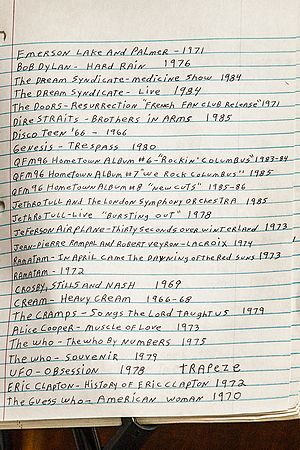 Emerson Lake And Palmer - 1971
Bob Dylan - Hard Rain 1976
The Dream Syndicate - medicine show 1984
The Dream Syndicate - Live 1984
The Doors - Resurrection "French Fan Club Release" 1971
Dire Straits - Brothers in Arms 1985
Disco Teen '66 - 1966
Genesis - Trespass 1980
QFM96 Hometown Album #6 - "Rockin' Columbus" 1983-84
QFM96 Hometown Album #7 "We Rock Columbus" 1985
QFM96 Hometown Album #8 "New Cuts" 1985-86
Jethro Tull And The London Symphony Orchestra 1985
Jethro Tull - Live "Bursting Out" 1978
Jefferson Airplane - Thirty Seconds over Winterland 1973
Jean-Pierre Rampal And Robert Veyron-Lacroix 1974
Ramatam - In April Came The Dawning of the Red Suns 1973
Ramatam - 1972
Crosby, Stills and Nash 1969
Cream - Heavy Cream 1966-68
The Cramps - Songs The Lord Taught us 1979
Alice Cooper - Muscle of Love 1973
The Who - The Who By Numbers 1975
The Who - Souvenir 1979
UFO - Obsession 1978 Trapeze
Eric Clapton - History of Eric Clapton 1972
The Guess Who - American Woman 1970